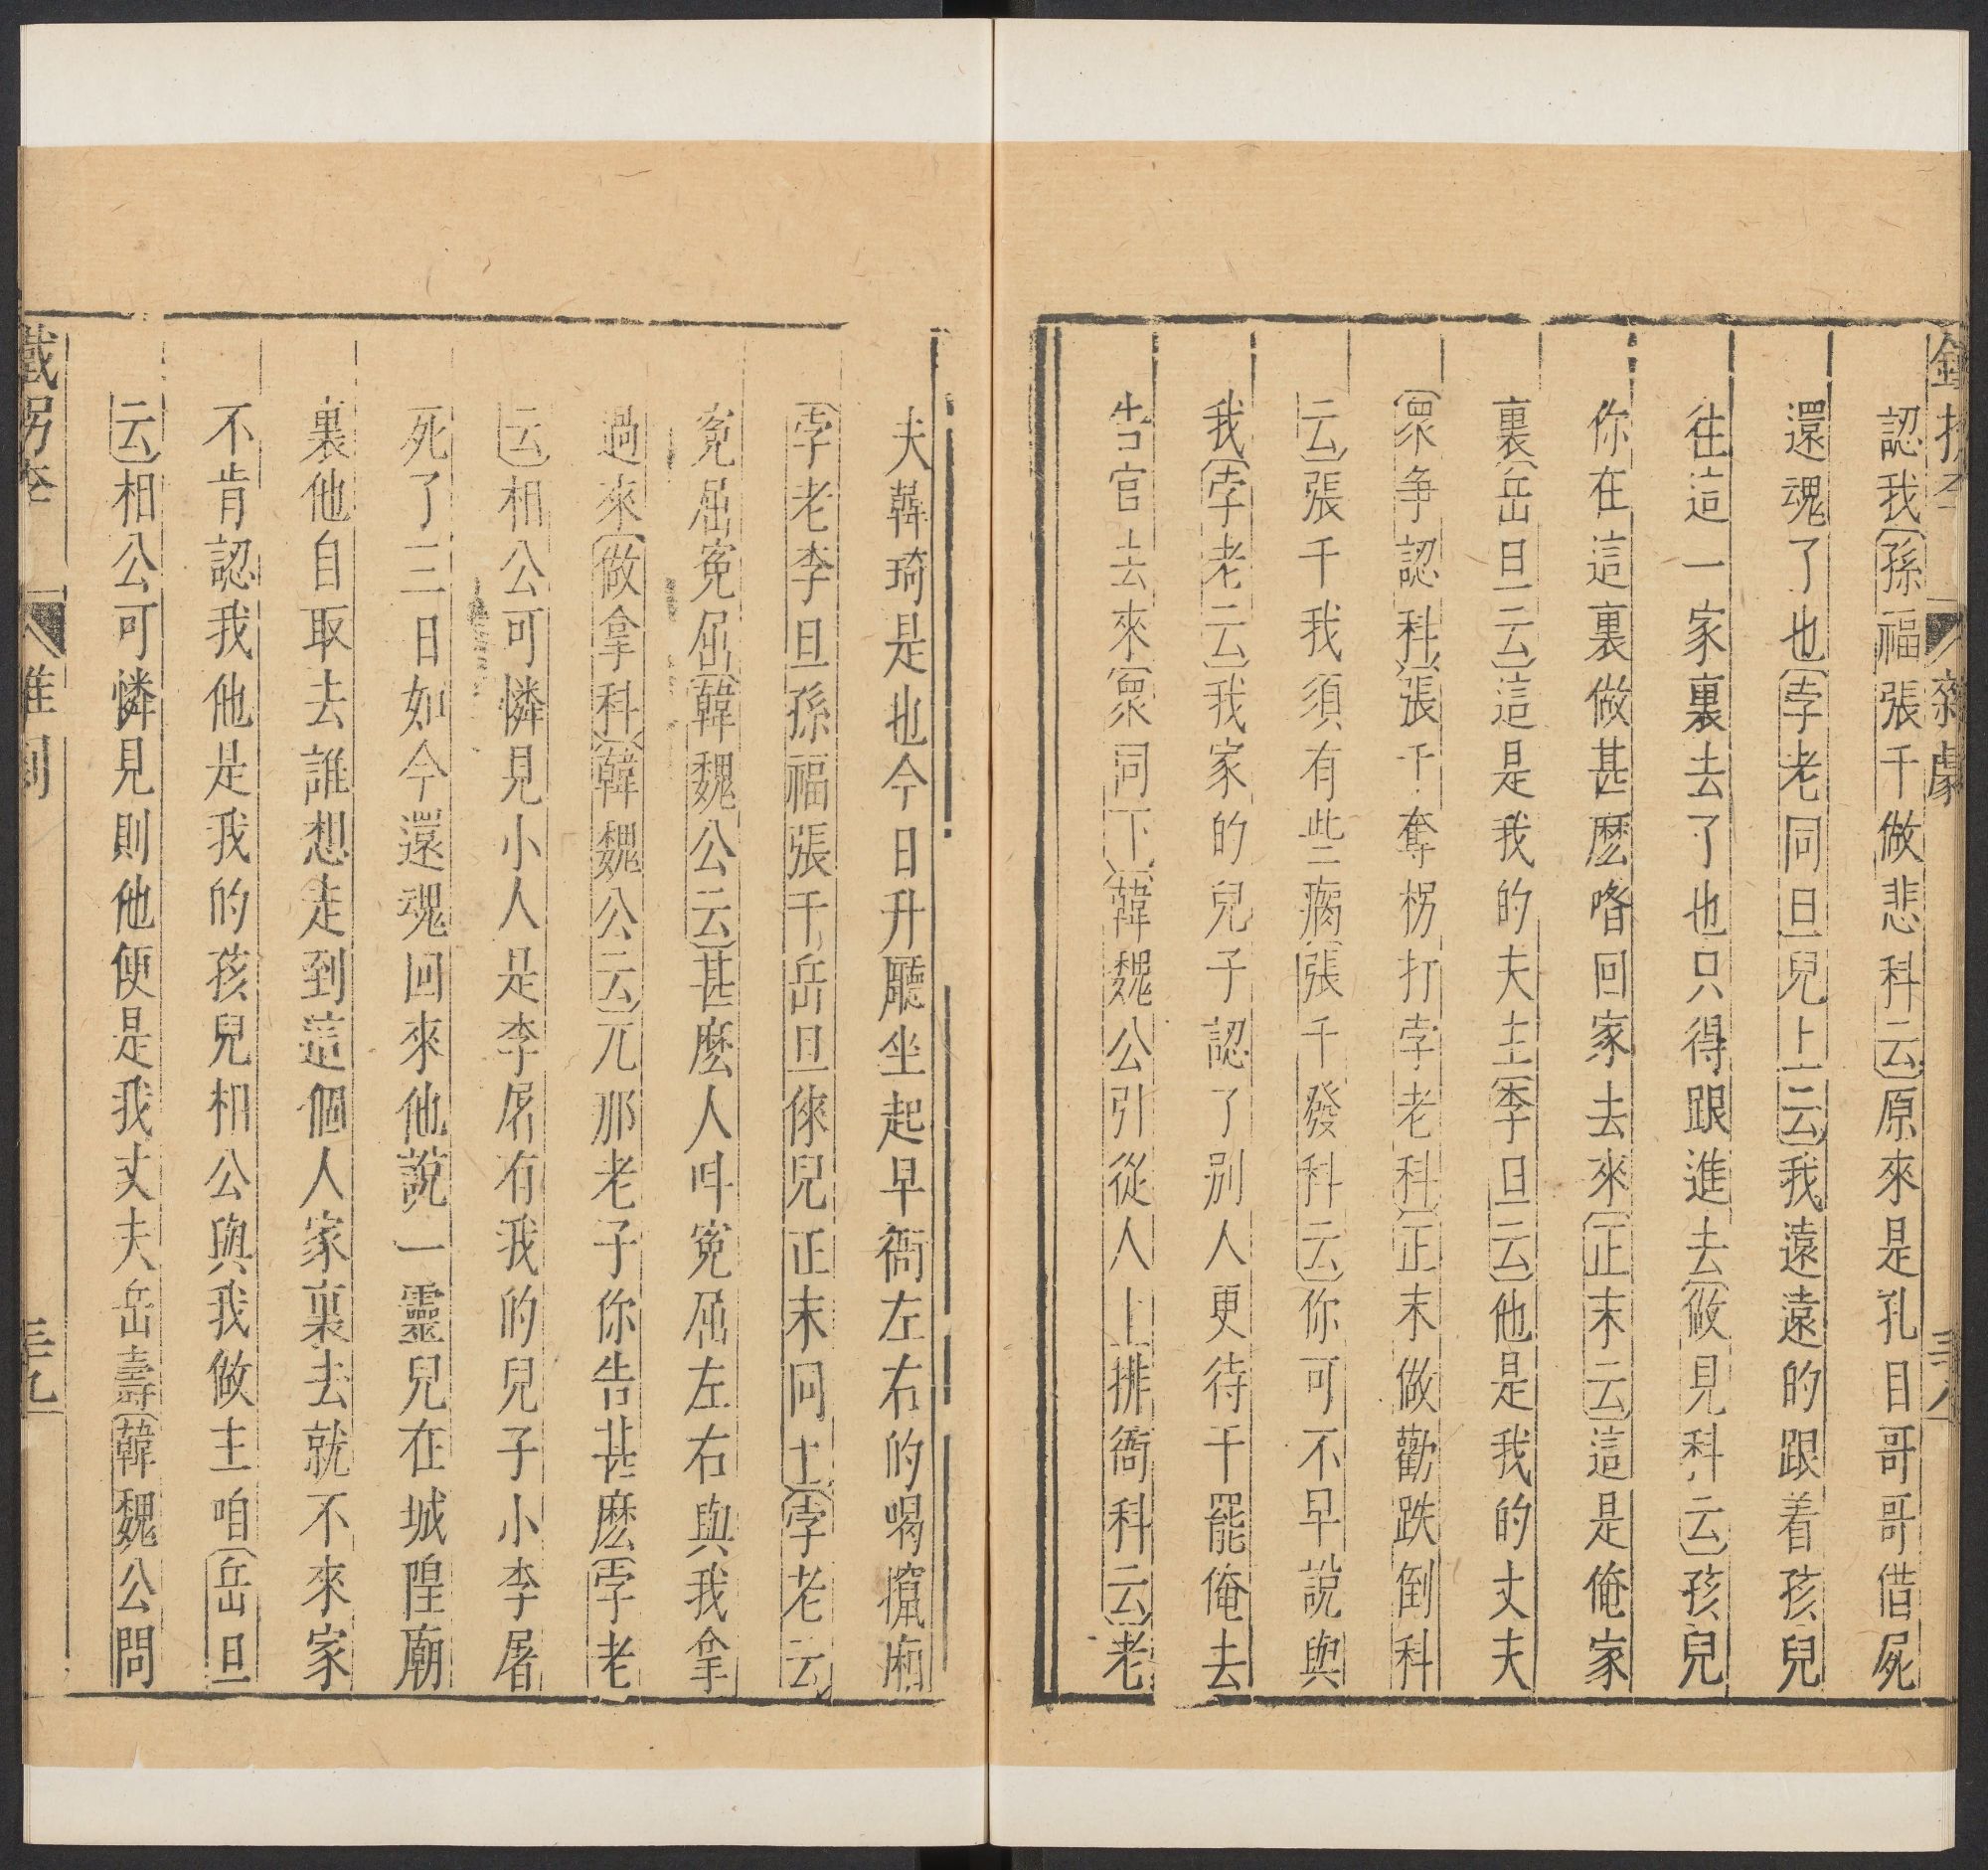 雜劇
認我〔孫福張千做悲科云〕原來是孔目哥哥借屍
還魂了也〔孛老同旦兒上云〕我遠遠的跟着孩兒
往這一家裏去了也只得跟進去〔做見科云〕孩兒
你在這裏做甚麽喒回家去來〔正末云〕這是俺家
裏〔岳旦云〕這是我的夫主〔李旦云〕他是我的丈夫
〔衆争認科〕〔張千奪拐打孛老科〕〔正末做勸跌倒科
云〕張千我須有些瘸〔張千發科云〕你可不早說與
我〔孛老云〕我家的兒子認了别人更待干罷俺去
告官去來〔衆同下〕〔韓魏公引從人上排衙科云〕老
夫韓琦是也今日升廳坐起早衙左右的喝攛廂
〔孛老李旦孫福張千岳旦倈兒正末同上〕〔孛老云〕
寃屈寃屈〔韓魏公云〕甚麽人叫寃屈左右與我拿
過來〔做拿科〕〔韓魏公云〕兀那老子你告甚麽〔孛老
云〕相公可憐見小人是李屠有我的兒子小李屠
死了三日如今還魂回來他說一靈兒在城隍廟
裏他自取去誰想走到這個人家裏去就不來家
不肯認我他是我的孩兒相公與我做主咱〔岳旦
云〕相公可憐見則他便是我丈夫岳壽〔韓魏公問
鐵拐李